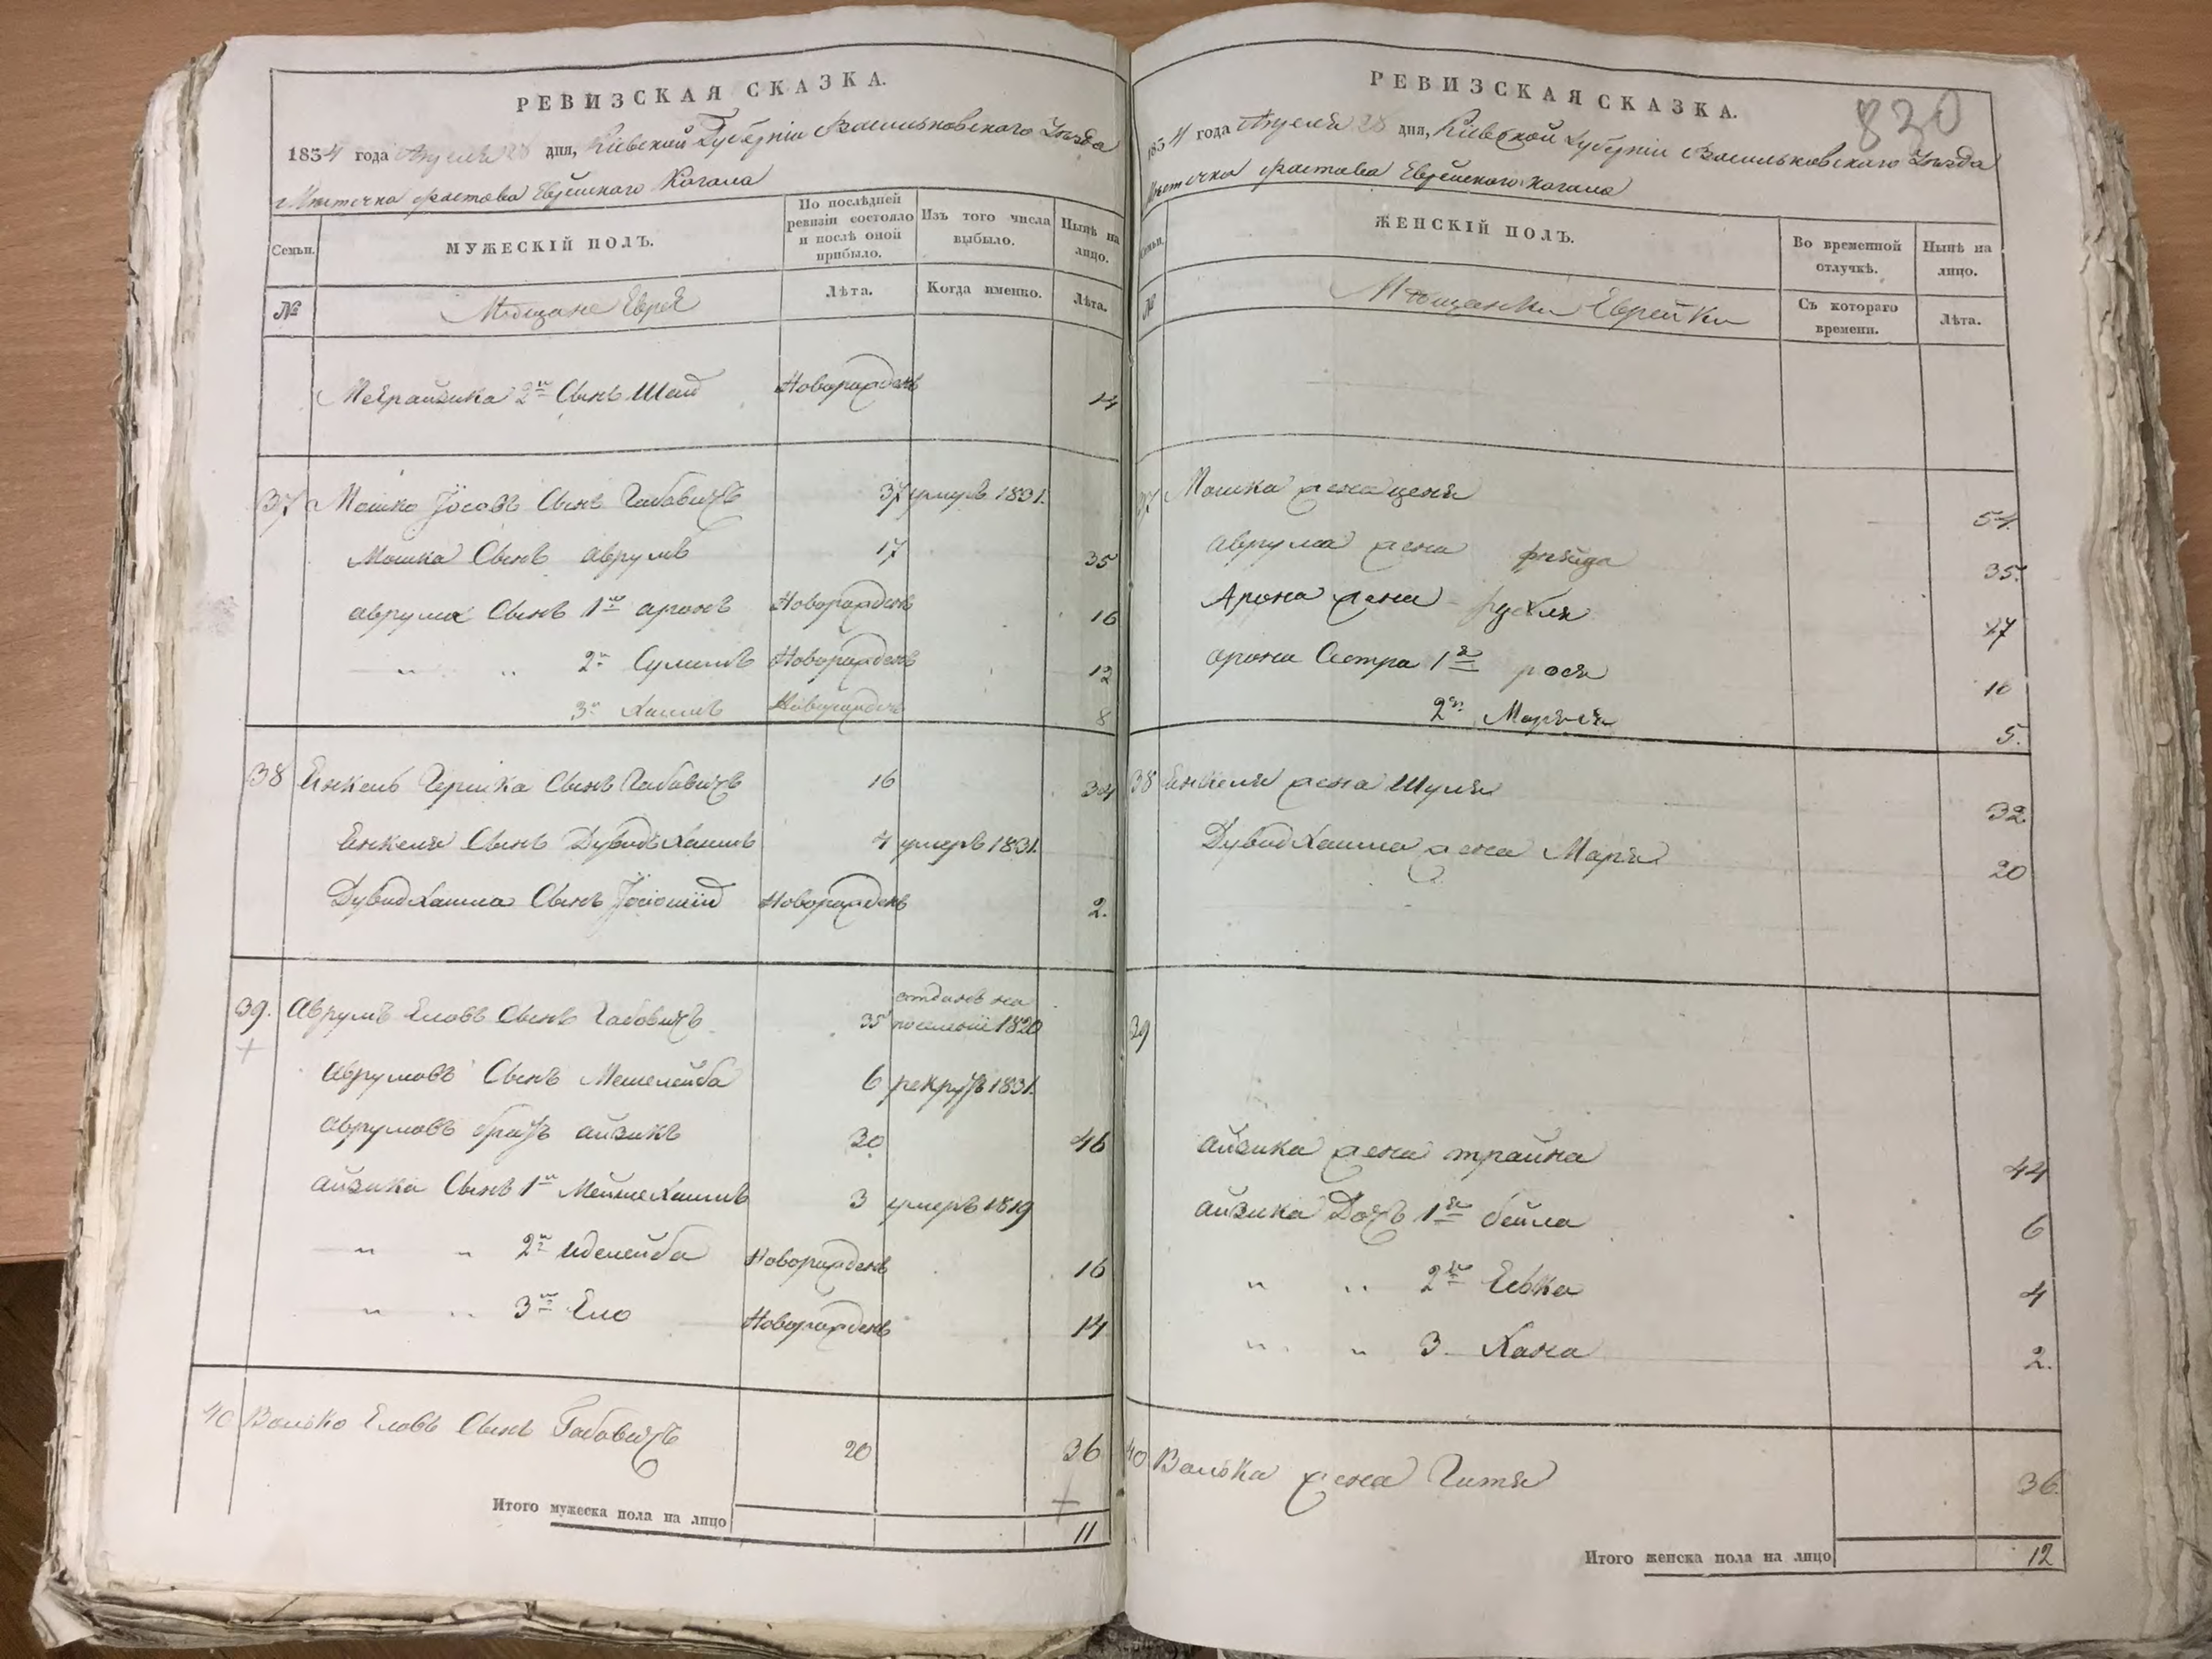 РЕВИЗСКАЯ СКАЗКА.
1834 года Апреля 28 дня, Кіевской Губерніи Васильковского Уезда
Местечка Фастова Еврейского Кагала
Семьи. МУЖЕСКІЙ ПОЛЪ. По послѣдней ревизіи состояло и послѣ оной прибыло. Изъ того числа выбыло. Нынѣ на лицо.
№ Мещане Евреи Лѣта. Когда именно. Лѣта.
2й Сынъ Новорожденъ 14
37 Мошко Іосовъ Сынъ Габовичъ 37 умеръ 1831.
Мошка Сынъ Аврумъ 17 35
Аврума Сынъ 1й Аронъ Новорожденъ 16
" " 2й Новорожденъ 12
3й Хаимъ Новорожденъ 8
38 Янкель Гершка Сынъ Габовичъ 16 34
Янкеля Сынъ Дувидъ Хаимъ 4 умеръ 1831.
Дувид Хаима Сынъ Новорожденъ 2.
39. Аврумъ Еловъ Сынъ Габовичъ 35 отданъ на поселение 1820
Аврумовъ Сынъ Мешелейба 6 рекрутъ 1831.
Аврумовъ братъ Айзикъ 30 46
Айзика Сынъ 1й Мейше Хаимъ 3 умеръ 1819
" " 2й Иделейба Новорожденъ 16
" " 3й Ело Новорожденъ 14
40 Волько Еловъ Сынъ Габовичъ 20 36
Итого мужеска пола на лицо 11
830
РЕВИЗСКАЯ СКАЗКА.
1834 года Апреля 28 дня, Кіевской Губерніи Васильковского Уезда
Местечка Фастова Еврейского Кагала
Семьи. ЖЕНСКІЙ ПОЛЪ. Во временной отлучкѣ. Нынѣ на лицо.
№ Мещанки Еврейки Съ котораго времени. Лѣта.
37 Мошка жена Ценя 54.
Аврума жена Фрейда 35.
Арона жена 17
Арона Сестра 1я рося 10
2я Марья 5.
38 Янкеля жена Шуля 32
Дувид Хаима жена Маря 20
39
Айзика жена трайна 44
Айзика Дочь 1я бейла 6
" " 2я Хавка 4
" " 3 Хана 2.
40 Волька жена Гитя 36.
Итого женска пола на лицо 12